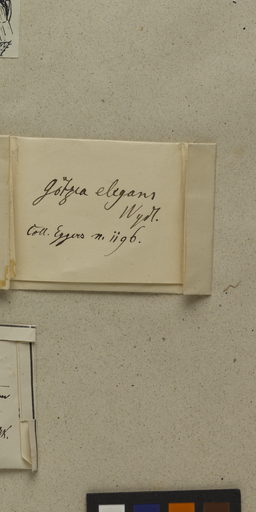 Götzea elegans
Wydl.
Coll. Eggers n. 1196.